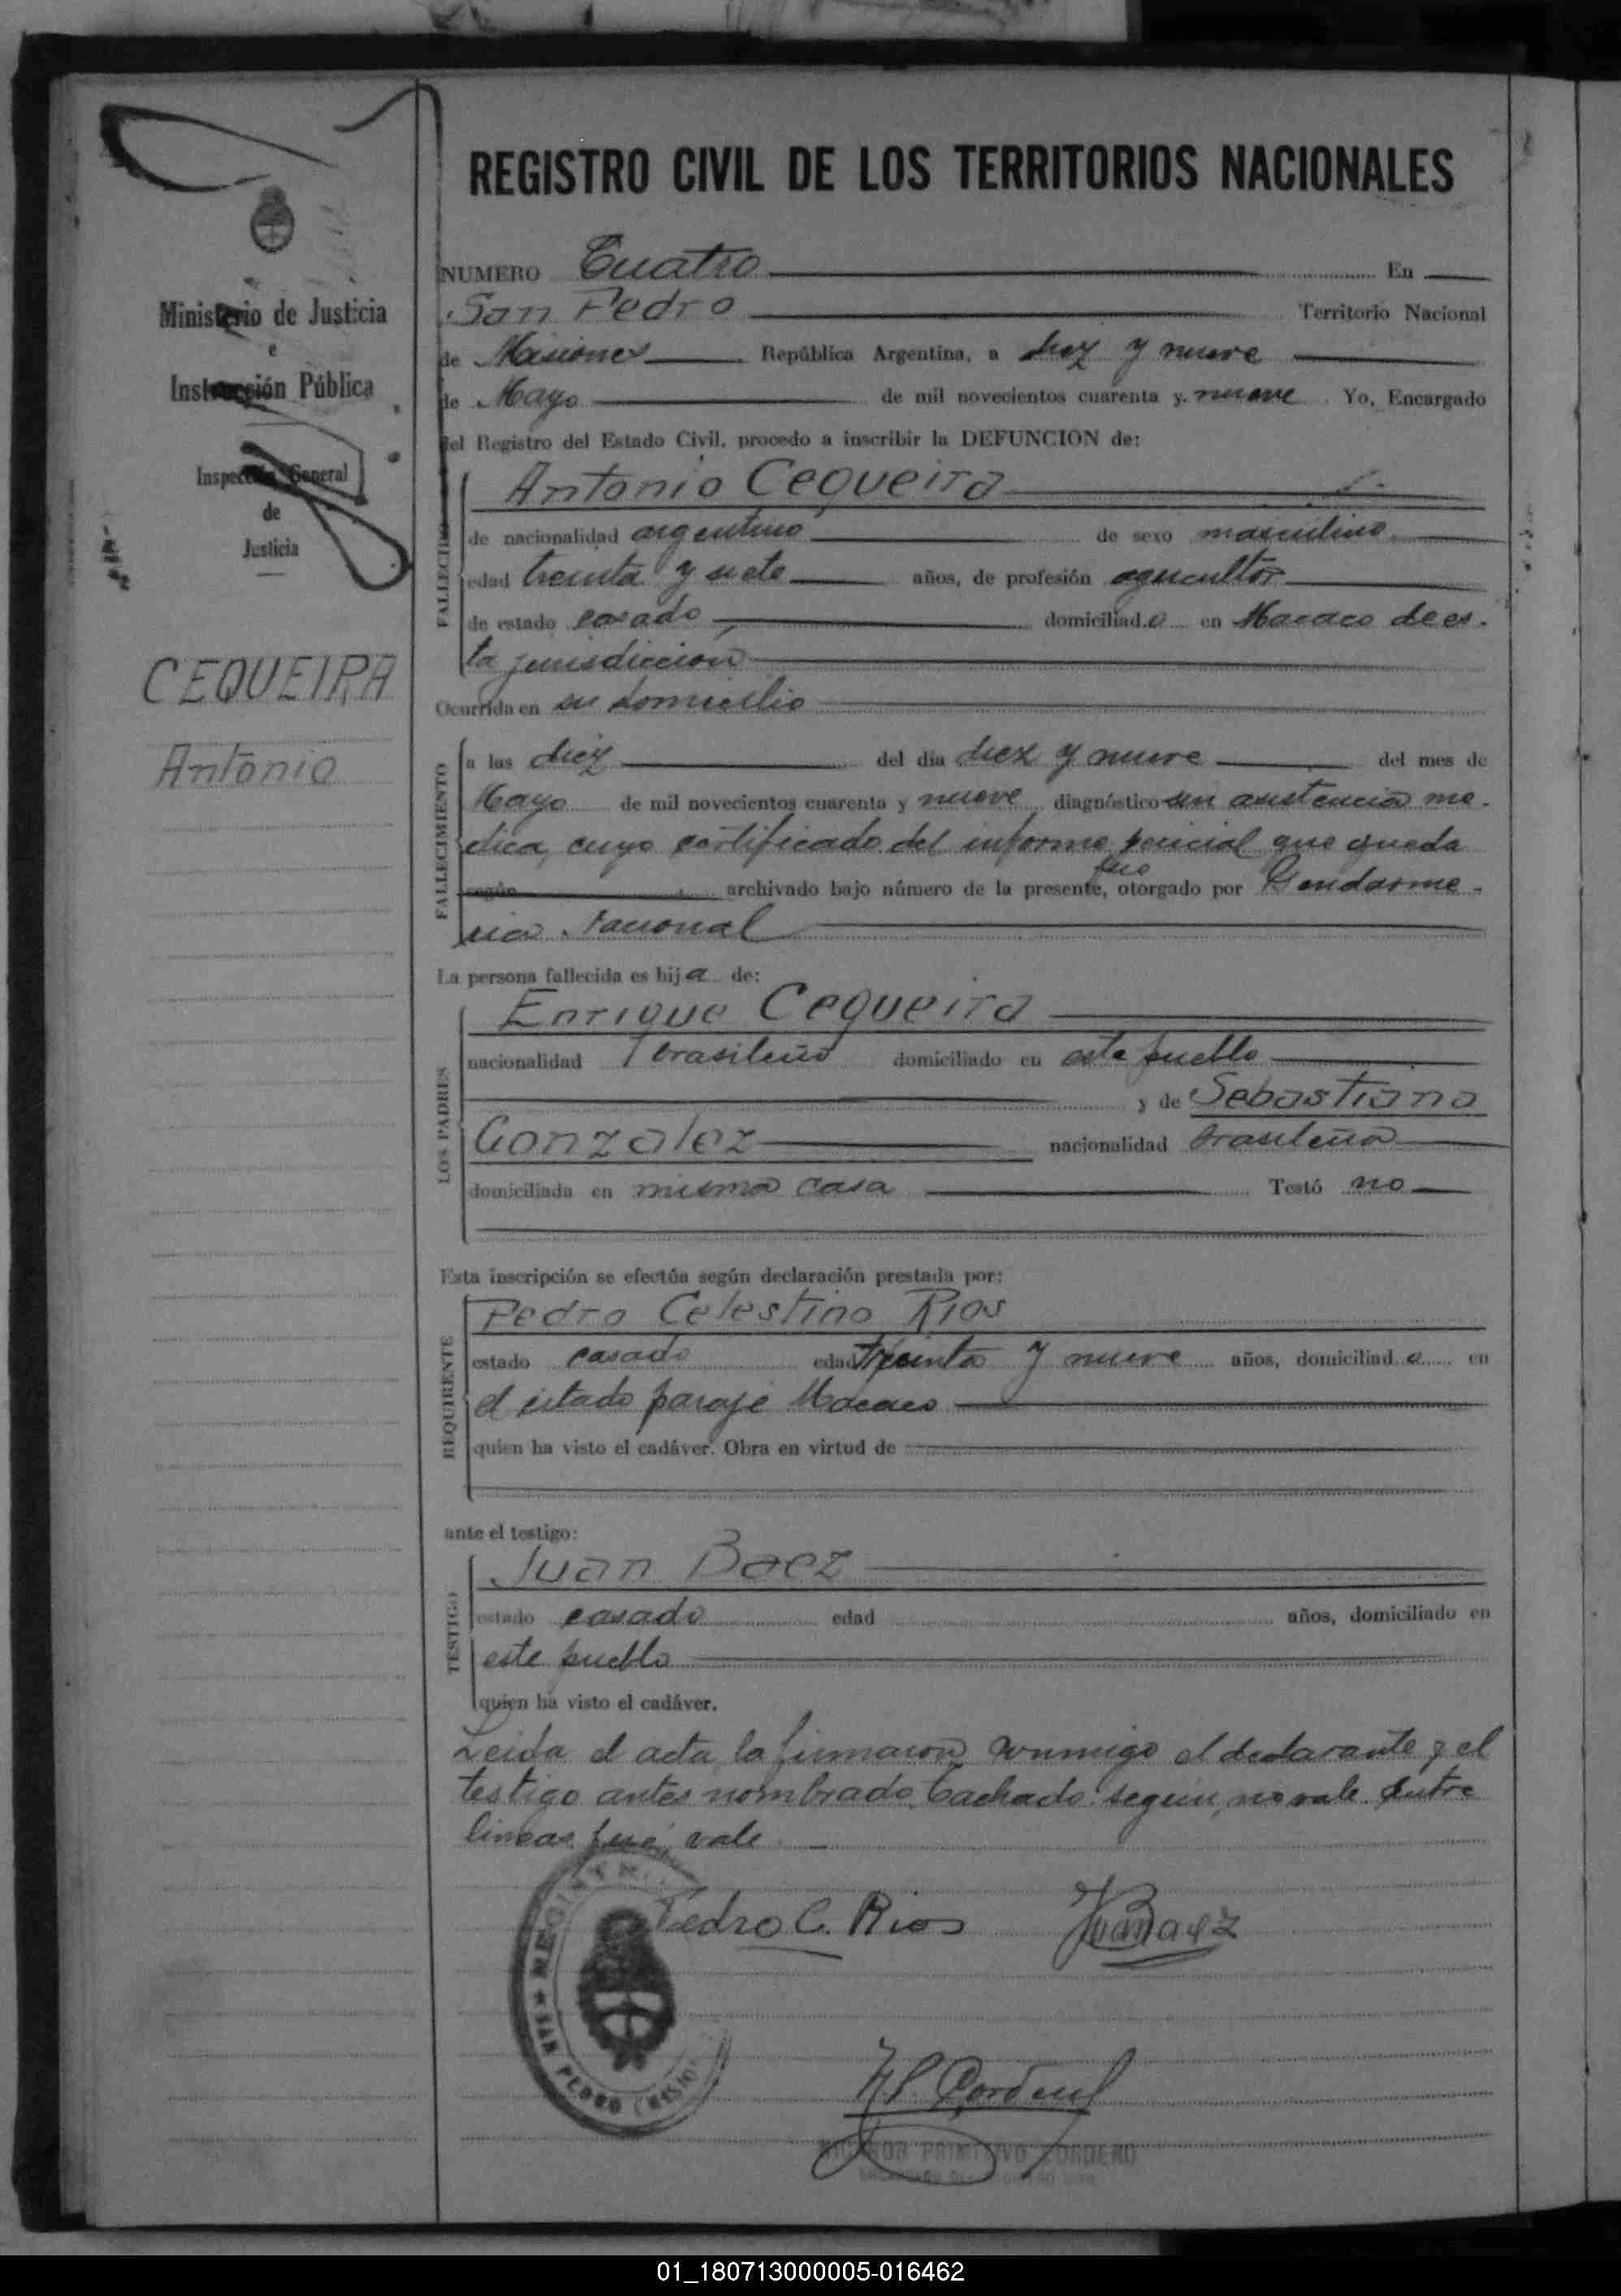 REGISTRO CIVIL DE LOS TERRITORIOS NACIONALES
Ministerio de Justicia
e
Instrucción Pública
Inspección General
de
Justicia
CEQUEIRA
Antonio
NUMERO Cuatro En
San Pedro Territorio Nacional
de Misiones República Argentina, a diez y nueve
de Mayo de mil novecientos cuarenta y nueve Yo, Encargado
del Registro del Estado Civil, procedo a inscribir la DEFUNCION de:
FALLECIDO
Antonio Cequeira
de nacionalidad argentino de sexo masculino
edad treinta y siete años, de profesión agricultor
de estado casado domiciliado en Macaco de es-
ta jurisdiccion
Ocurrida en su domicilio
FALLECIMIENTO
a las diez del día diez y nueve del mes de
Mayo de mil novecientos cuarenta y nueve diagnóstico sin asistencia me-
dica, cuyo certificado del informe pericial que queda
fué
según archivado bajo número de la presente, otorgado por Gendarme-
ria Nacional
La persona fallecida es hija de:
LOS PADRES
Enrique Cequeira
nacionalidad brasileño domiciliado en este pueblo
y de Sebastiana
Gonzalez nacionalidad brasileña
domiciliada en misma casa Testó no
Esta inscripción se efectúa según declaración prestada por:
REQUIRENTE
Pedro Celestino Rios
estado casado edad treinta y nueve años, domiciliado en
el citado paraje Macaco
quien ha visto el cadáver. Obra en virtud de
ante el testigo:
TESTIGO
Juan Baez
estado casado edad años, domiciliado en
este pueblo
quien ha visto el cadáver.
Leida el acta la firmaron conmigo el declarante y el
testigo antes nombrado. Tachado: según, no vale. Entre
lineas: fué, vale
Pedro C. Rios Juan Baez
SAN PEDRO
PRIMITIVO CORDERO
01_180713000005-016462